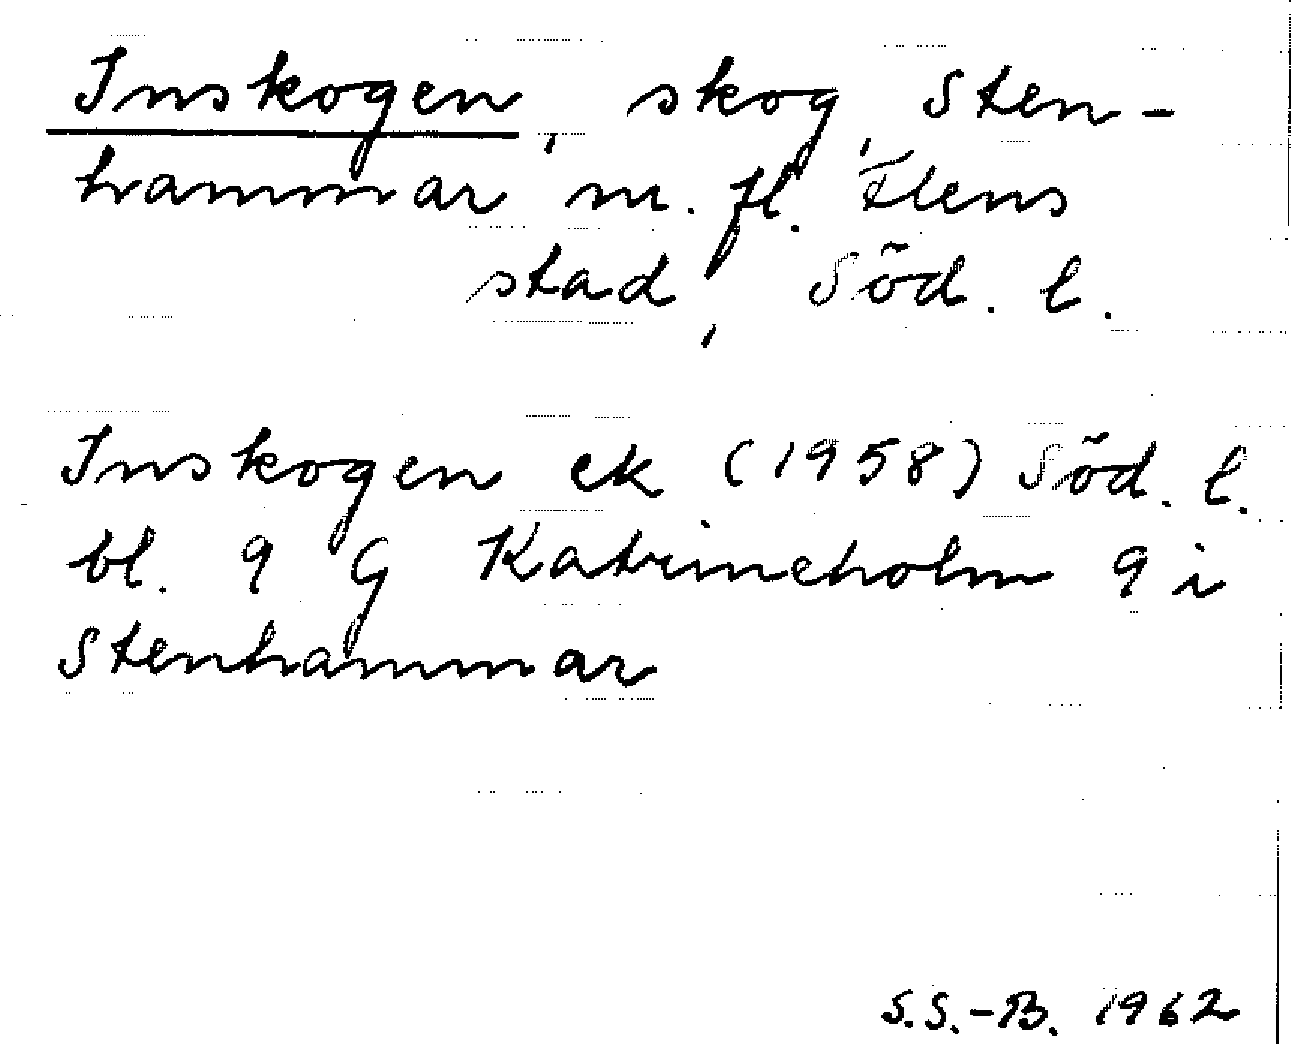 Inskogen, skog, Sten-
hammar m. fl. Flens
stad, Söd. l.
Inskogen ek (1958) Söd. l.
bl. 9 G Katrineholm 9 i
Stenhammar
S.S.-B. 1962